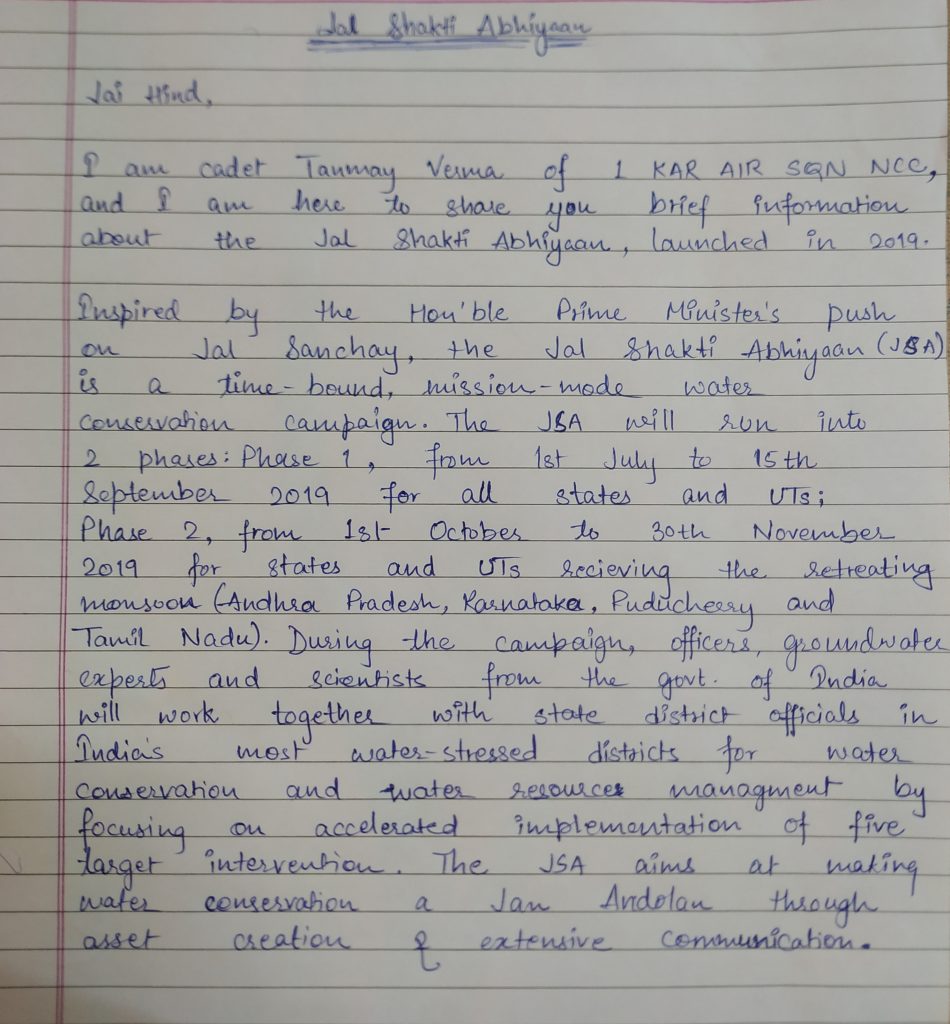 Jal Shakti Abhiyaan
Jai Hind,
I am cadet Tanmay Verma of 1 KAR AIR SQN NCC,
and I am here to share you brief information
about the Jal Shakti Abhiyaan, launched in 2019.
Inspired by the Hon'ble Prime Minister's push
on Jal Sanchay, the Jal Shakti Abhiyaan (JSA)
is a time-bound, mission-mode water
conservation campaign. The JSA will run into
2 phases: Phase 1, from 1st July to 15th
September 2019 for all states and UTs;
Phase 2, from 1st October to 30th November
2019 for states and UTs recieving the retreating
monsoon (Andhra Pradesh, Karnataka, Puducherry and
Tamil Nadu). During the campaign, officers, groundwater
experts and scientists from the govt. of India
will work together with state district officials in
India's most water-stressed districts for water
conservation and water resources managment by
focusing on accelerated implementation of five
target intervention. The JSA aims at making
water conservation a Jan Andolan through
asset creation & extensive communication.